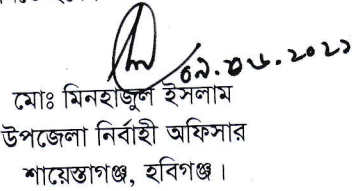 ০৯.০৮.২০২১
মোঃ মিনহাজুল ইসলাম
উপজেলা নির্বাহী অফিসার
শায়েস্তাগঞ্জ, হবিগঞ্জ।